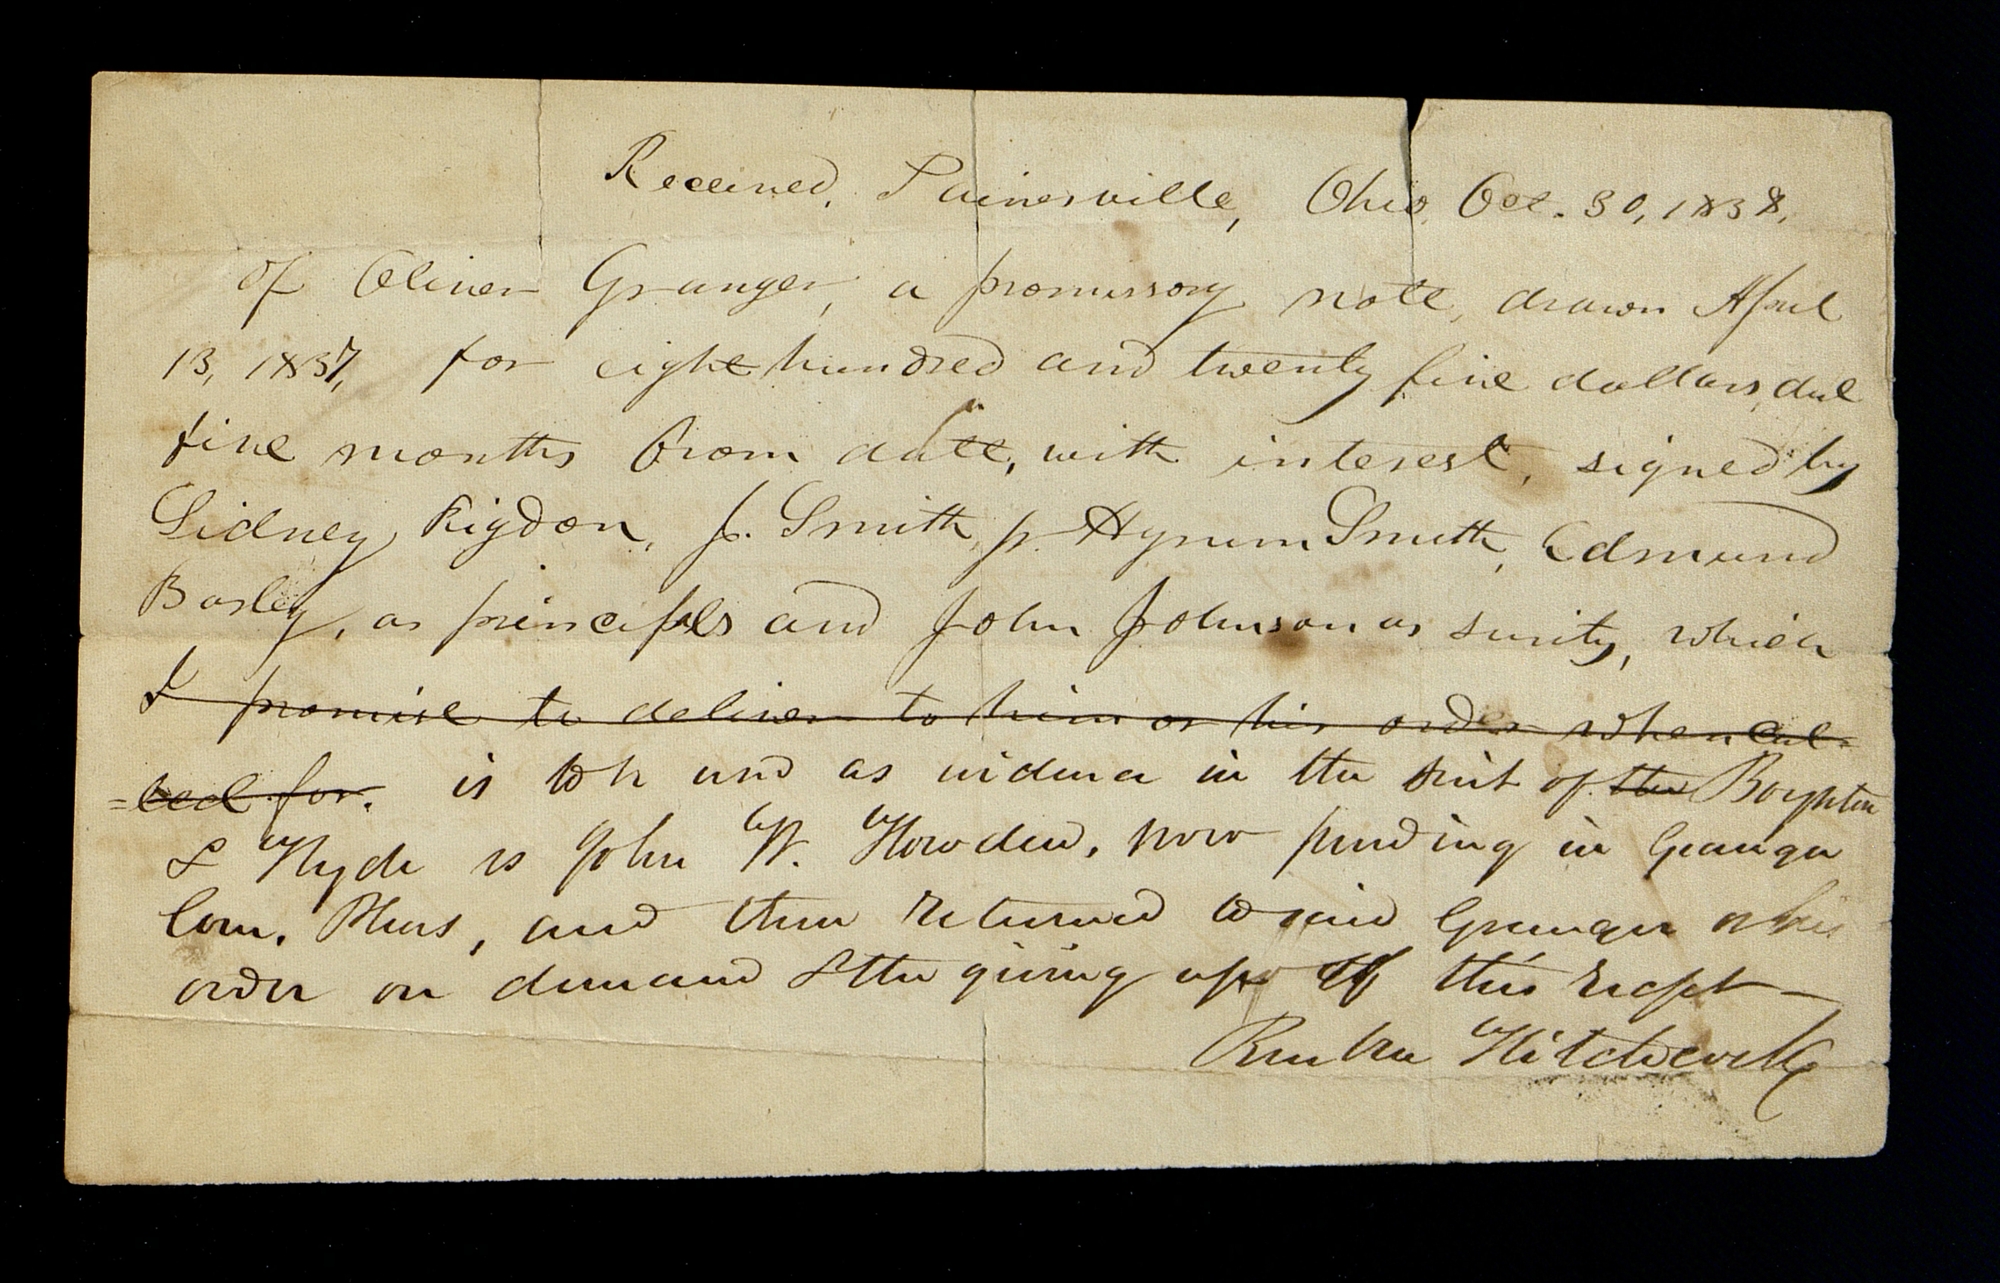 Received, Painesville, Ohio, Oct. 30, 1838,
of Oliver Granger, a promissory note, drawn April
13, 1837, for eight hundred and twenty five dollars, due
five months from date, with interest, signed by
Sidney Rigdon, J. Smith, jr. Hyrum Smith, Edmund
Bosley, as principals and John Johnson as surity, which
I promise to deliver to him or his order when cal-
=led for. is to be used as evidence in the suit of the Boynton
& Hyde vs John W. Howden, now pending in Geauga
Com. Pleas, and then returned to said Granger or his
order on demand & the giving up of this recept —
Reuben Hitchcock